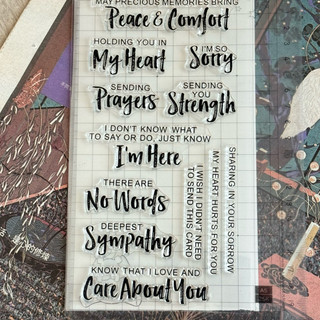 MAY PRECIOUS MEMORIES BRING
Peace & Comfort
HOLDING YOU IN
My Heart
I'M SO
Sorry
SENDING
Prayers
SENDING
YOU
Strength
I DON'T KNOW WHAT
TO SAY OR DO, JUST KNOW
I'm Here
THERE ARE
No Words
DEEPEST
Sympathy
KNOW THAT I LOVE AND
Care About You
SHARING IN YOUR SORROW
MY HEART HURTS FOR YOU
I WISH I DIDN'T NEED
TO SEND THIS CARD